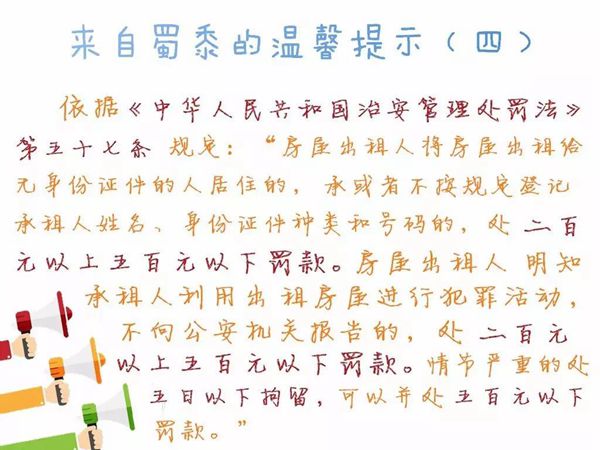 来自蜀黍的温馨提示（四）
依据《中华人民共和国治安管理处罚法》
第五十七条 规定：“房屋出租人将房屋出租给
无身份证件的人居住的，承或者不按规定登记
承租人姓名、身份证件种类和号码的，处 二百
元以上五百元以下罚款。房屋出租人 明知
承租人利用出 租房屋进行犯罪活动，
不向公安机关报告的，处 二百元
以上五百元以下罚款。情节严重的处
五日以下拘留，可以并处 五百元以下
罚款。”